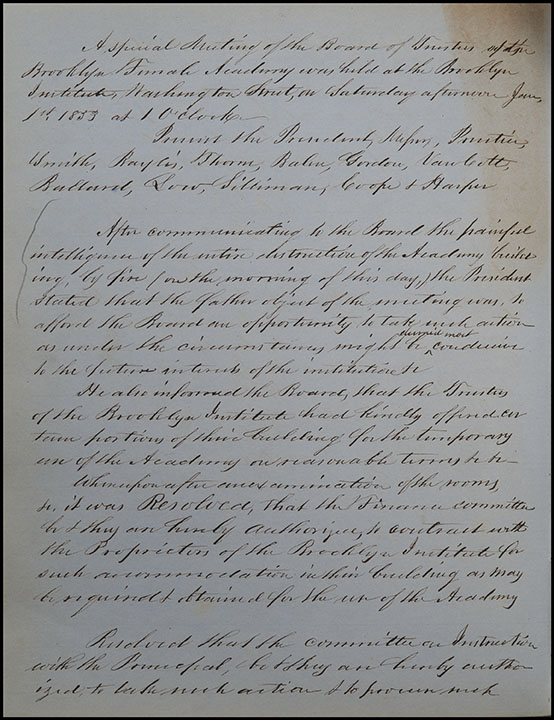 A special Meeting of the Board of Trustees of the
Brooklyn Female Academy was held at the Brooklyn
Institute, Washington Street, on Saturday afternoon Jan,
1st 1853 at 1 O'Clock
Present the President, Messrs, Prentice,
Smith, Baylis, Thorn, Baker, Gordon, Van Cott,
Ballard, Low, Silliman, Coope & Harper
After communicating to the Board the painful
intelligence of the entire destruction of the Academy build
ing, by fire (on the morning of this day,) the President
stated that the father object of the meeting was, to
afford the Board an opportunity to take such action
as under the circumstances, might be deemed most conducive
to the future interests of the institution &c
He also informed the Board, that the Trustees
of the Brooklyn Institute had kindly offered cer
tain portions of their building for the temporary
use of the Academy on reasonable terms &c &c
Whereupon after an examination of the rooms
&c, it was Resolved, that the Finance committee
be & they are hereby authorized, to contract with
the Proprietors of the Brooklyn Institute for
such accommodation in their building as may
be required & obtained for the use of the Academy
Resolved that the committee on Instruction
with the Principal, be & they are hereby author
ized to take such action & to procure such